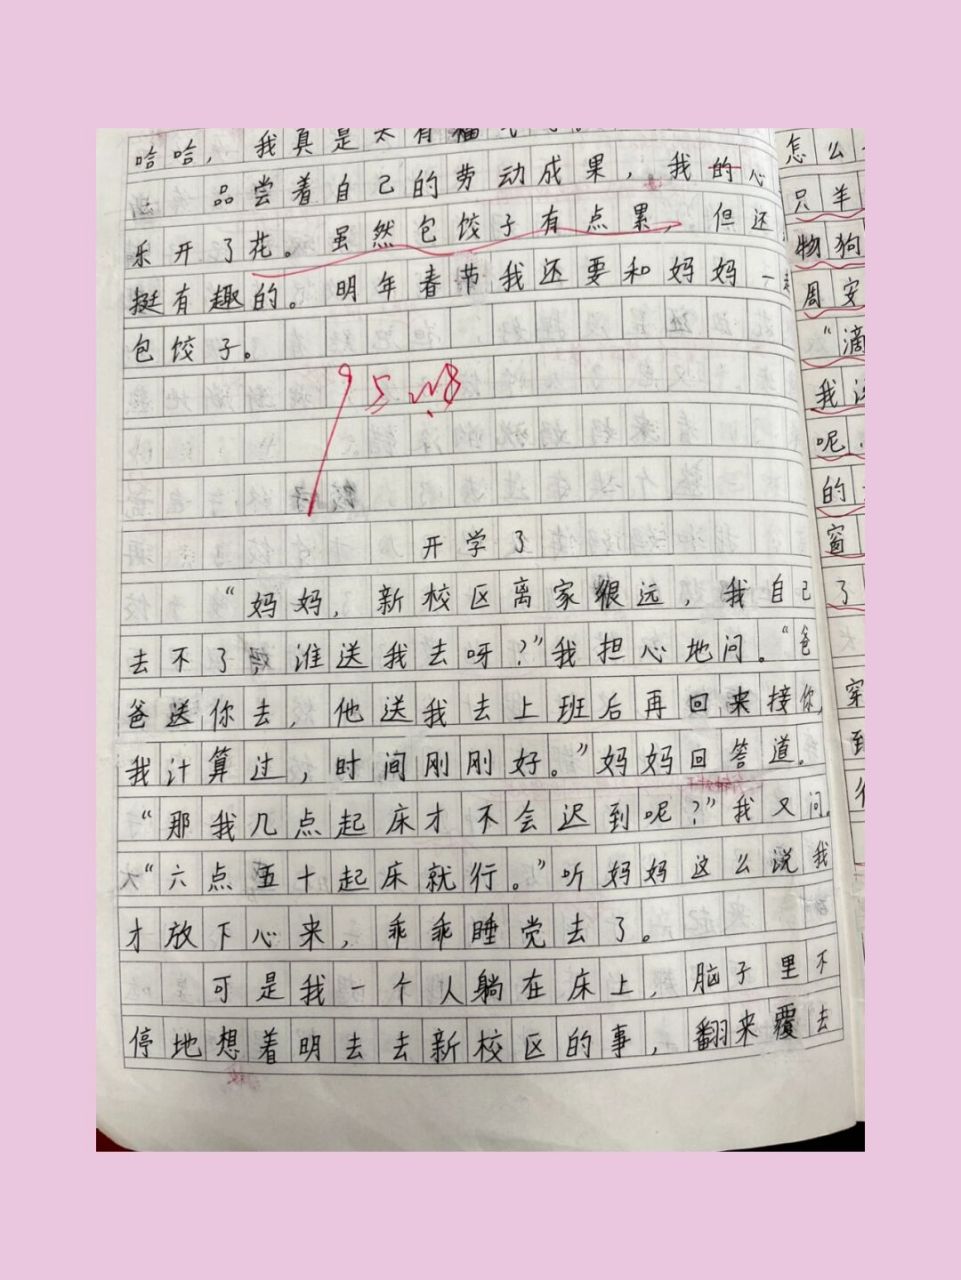 哈哈，我真是太有福
品尝着自己的劳动成果，我的心
乐开了花。虽然包饺子有点累，但还
挺有趣的。明年春节我还要和妈妈一起
包饺子。
95
开学了
“妈妈，新校区离家很远，我自己
去不了，谁送我去呀？”我担心地问。“爸
爸送你去，他送我去上班后再回来接你，
我计算过，时间刚刚好。”妈妈回答道。
“那我几点起床才不会迟到呢？”我又问。
“六点五十起床就行。”听妈妈这么说我
才放下心来，乖乖睡觉去了。
可是我一个人躺在床上，脑子里不
停地想着明去去新校区的事，翻来覆去
怎么
只羊
物狗
周安
“滴
我
呢，
的
窗
了
穿
到